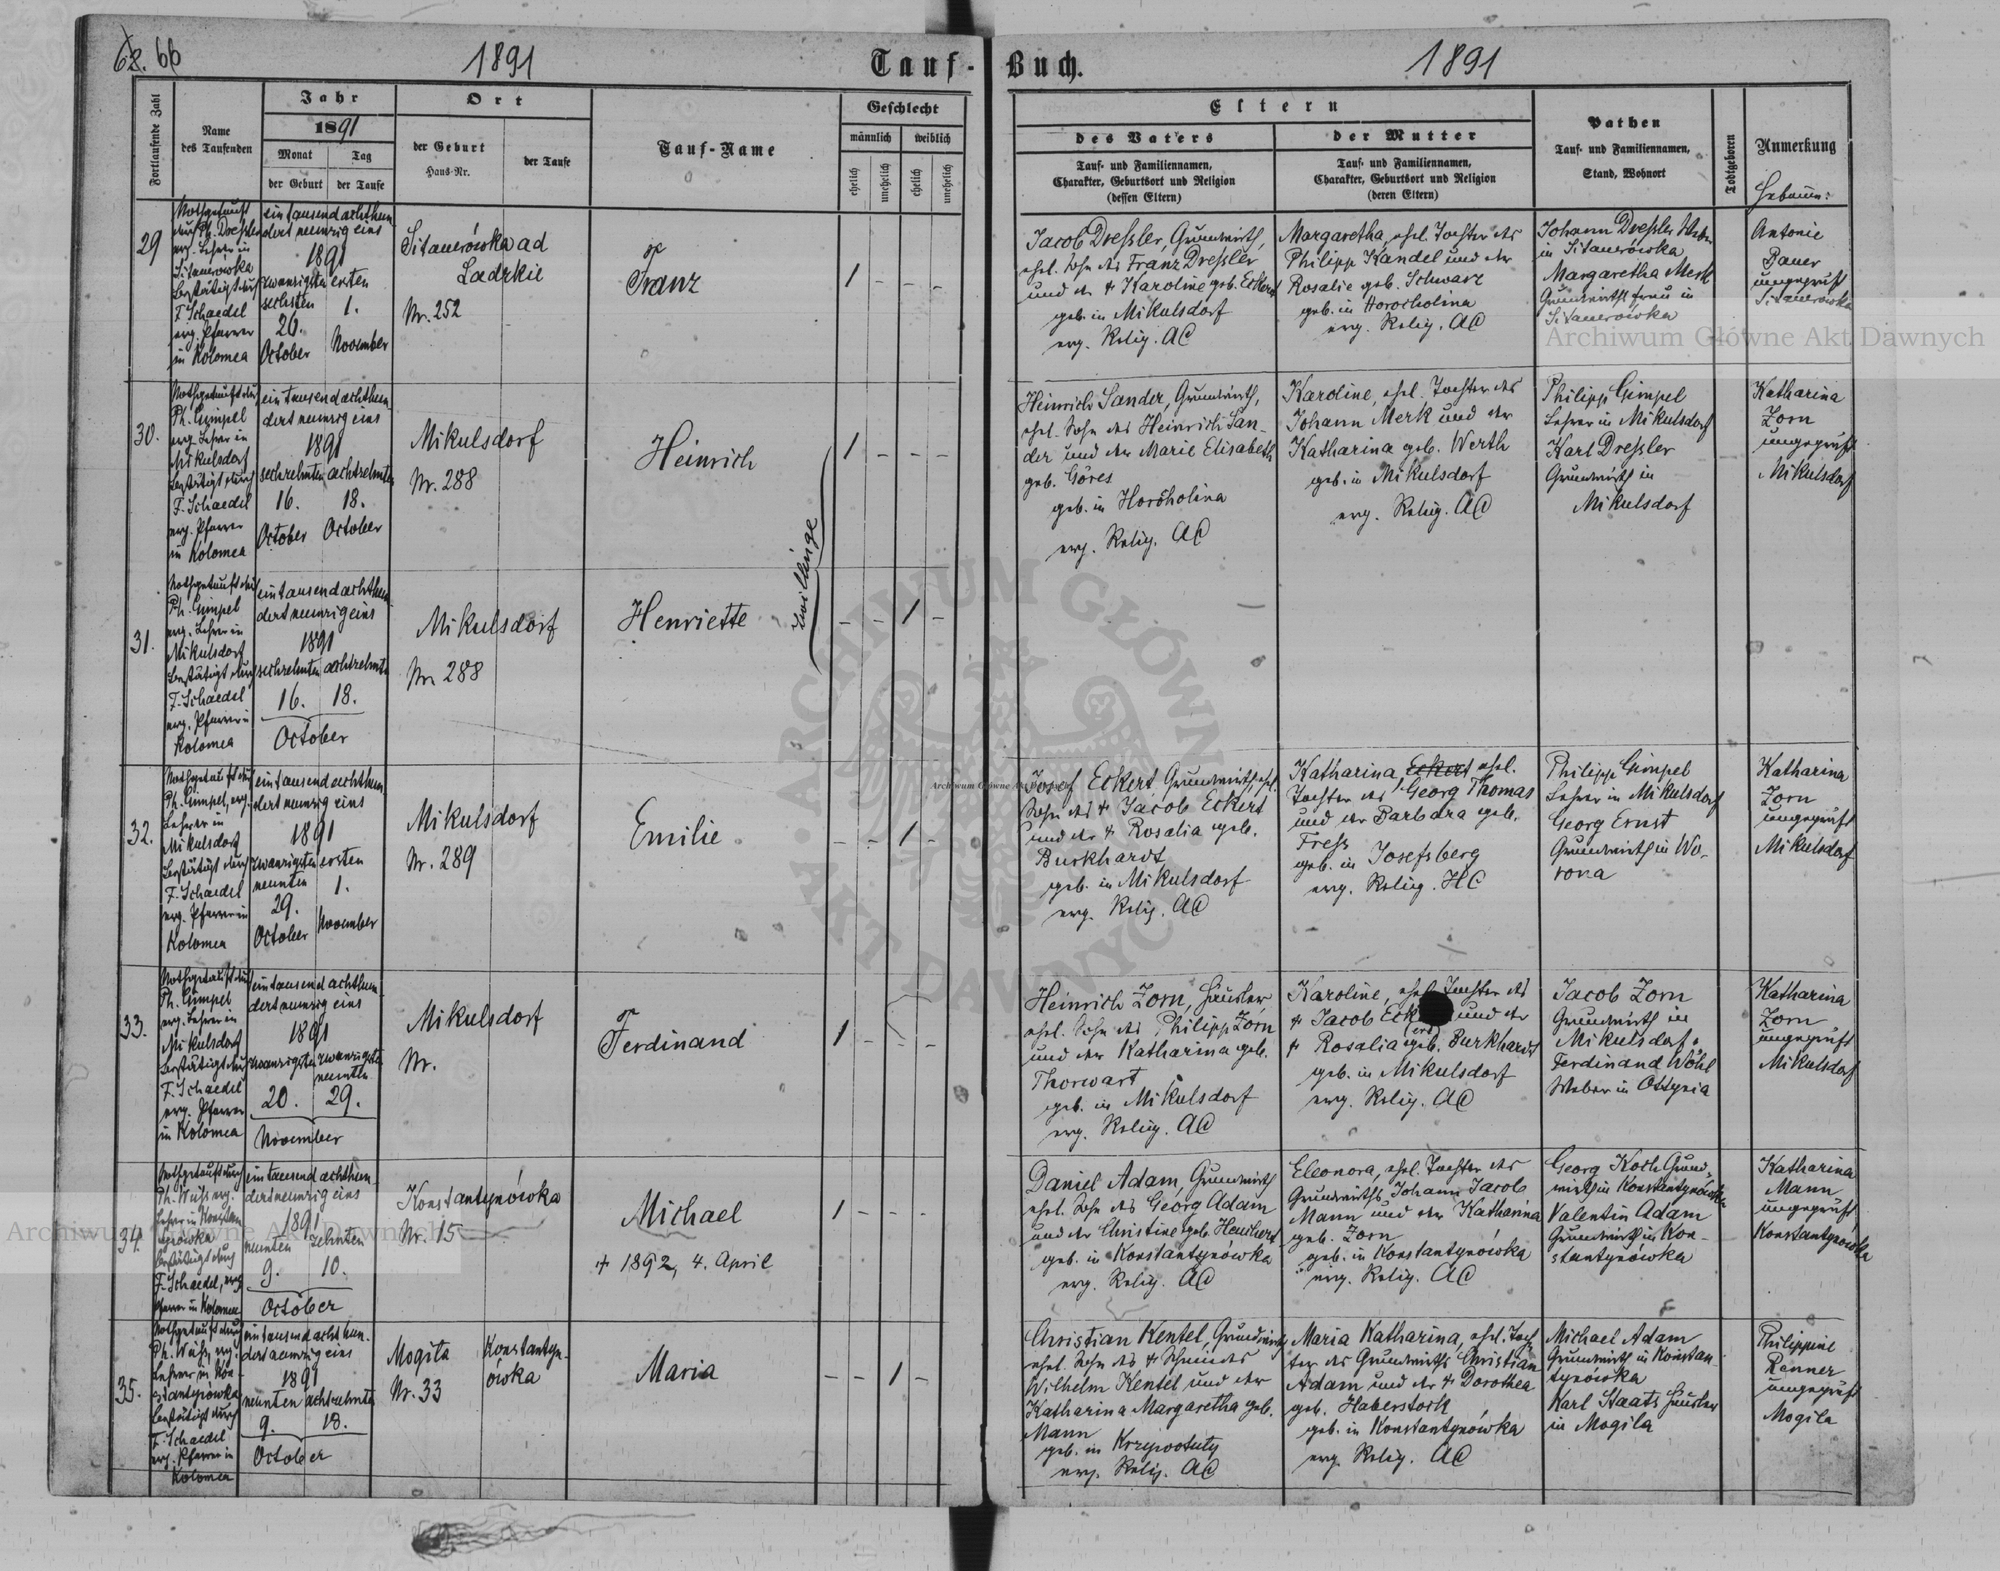 68. 66
1891
Tauf-
Buch.
1891
Fortlaufende Zahl
Name
des Taufenden
Jahr
1891
Monat
Tag
der Geburt
der Taufe
Ort
der Geburt
Haus-Nr.
der Taufe
Tauf-Name
Geschlecht
männlich
weiblich
ehelich
unehelich
ehelich
unehelich
Eltern
des Vaters
Tauf- und Familiennamen,
Charakter, Geburtsort und Religion
(dessen Eltern)
der Mutter
Tauf- und Familiennamen,
Charakter, Geburtsort und Religion
(deren Eltern)
Pathen
Tauf- und Familiennamen,
Stand, Wohnort
Todtgeboren
Anmerkung
Hebamme:
29
Nothgetauft
durch Ph. Dressler
evg. Lehrer in
Sitauerowka
bestätigt durch
F. Schaedel
evg. Pfarrer
in Kolomea
ein tausend achthun-
dert neunzig eins
1891
zwanzigsten ersten
sechsten 1.
26.
October November
Sitauerówka ad
Ladzkie
Nr. 252
Franz
1 - - -
Jacob Dressler, Grundwirth,
ehel. Sohn des Franz Dressler
und der + Karoline geb. Eckert
geb. in Mikulsdorf
evg. Relig. AC
Margaretha, ehel. Tochter des
Philipp Kandel und der
Rosalie geb. Schwarz
geb. in Horocholina
evg. Relig. AC
Johann Dressler Weber
in Sitauerówka
Margaretha Merk
Grundwirths frau in
Sitauerówka
Antonie
Bauer
ungeprüft
Sitauerowka
30.
Nothgetauft durch
Ph. Gimpel
evg. Lehrer in
Mikulsdorf
bestätigt durch
F. Schaedel
evg. Pfarrer
in Kolomea
ein tausend achthun-
dert neunzig eins
1891
sechzehnten achtzehnten
16. 18.
October October
Mikulsdorf
Nr. 288
Heinrich
1 - - -
Zwillinge
Heinrich Sander, Grundwirth,
ehel. Sohn des Heinrich San-
der und der Marie Elisabeth
geb. Göres
geb. in Horocholina
evg. Relig. AC
Karoline, ehel. Tochter des
Johann Merk und der
Katharina geb. Werth
geb. in Mikulsdorf
evg. Relig. AC
Philipp Gimpel
Lehrer in Mikulsdorf
Karl Dressler
Grundwirth in
Mikulsdorf
Katharina
Zorn
ungeprüft
Mikulsdorf
31.
Nothgetauft durch
Ph. Gimpel
evg. Lehrer in
Mikulsdorf
bestätigt durch
F. Schaedel
evg. Pfarrer in
Kolomea
ein tausend achthun-
dert neunzig eins
1891
sechzehnten achtzehnten
16. 18.
October
Mikulsdorf
Nr. 288
Henriette
- - 1 -
32.
Nothgetauft durch
Ph. Gimpel, evg.
Lehrer in
Mikulsdorf
bestätigt durch
F. Schaedel
evg. Pfarrer in
Kolomea
ein tausend achthun-
dert neunzig eins
1891
zwanzigsten ersten
neunten 1.
29.
October November
Mikulsdorf
Nr. 289
Emilie
- - 1 -
Josef Eckert Grundwirth, ehel.
Sohn des + Jacob Eckert
und der + Rosalia geb.
Burkhardt
geb. in Mikulsdorf
evg. Relig. AC
Katharina, Eckert ehel.
Tochter des Georg Thomas
und der Barbara geb.
Fress
geb. in Josefsberg
evg. Relig. HC
Philipp Gimpel
Lehrer in Mikulsdorf
Georg Ernst
Grundwirth in Wo-
rona
Katharina
Zorn
ungeprüft
Mikulsdorf
33.
Nothgetauft durch
Ph. Gimpel
evg. Lehrer in
Mikulsdorf
bestätigt durch
F. Schaedel
evg. Pfarrer
in Kolomea
ein tausend achthun-
dert neunzig eins
1891
zwanzigsten zwanzigsten
neunten
20. 29.
November
Mikulsdorf
Nr.
Ferdinand
1 - - -
Heinrich Zorn, Häusler
ehel. Sohn des Philipp Zorn
und der Katharina geb.
Thorwart
geb. in Mikulsdorf
evg. Relig. AC
Karoline, ehel. Tochter des
+ Jacob Eck und der
(ert)
+ Rosalia geb. Burkhardt
geb. in Mikulsdorf
evg. Relig. AC
Jacob Zorn
Grundwirth in
Mikulsdorf
Ferdinand Wöhl
Weber in Ottynia
Katharina
Zorn
ungeprüft
Mikulsdorf
34.
Nothgetauft durch
Ph. Wühs evg.
Lehrer in Konstan
tynówka
bestätigt durch
F. Schaedel, evg.
Pfarrer in Kolomea
ein tausend achthun-
dert neunzig eins
1891
neunten zehnten
9. 10.
October
Konstantynówka
Nr. 15
Michael
+ 1892, 4. April
1 - - -
Daniel Adam, Grundwirth
ehel. Sohn des Georg Adam
und der Christine geb. Henchert
geb. in Konstantynówka
evg. Relig. AC
Eleonora, ehel. Tochter des
Grundwirths Johann Jacob
Mann und der Katharina
geb. Zorn
geb. in Konstantynówka
evg. Relig. AC
Georg Koch Grund-
wirth in Konstantynówka
Valentin Adam
Grundwirth in Kon-
stantynówka
Katharina
Mann
ungeprüft
Konstantynowka
35.
Nothgetauft durch
Ph. Wühs evg.
Lehrer in Kon-
stantynowka
bestätigt durch
F. Schaedel
evg. Pfarrer in
Kolomea
ein tausend acht hun-
dert neunzig eins
1891
neunten achtzehnten
9. 18.
October
Mogila
Nr. 33
Konstantyn-
ówka
Maria
- - 1 -
Christian Kentel, Grundwirth
ehel. Sohn des + Schmiedes
Wilhelm Kentel und der
Katharina Margaretha geb.
Mann
geb. in Krzywotuly
evg. Relig. AC
Maria Katharina, ehel. Toch-
ter des Grundwirths Christian
Adam und der + Dorothea
geb. Haberstock
geb. in Konstantynówka
evg. Relig. AC
Michael Adam
Grundwirth in Konstan-
tynówka
Karl Staats Häusler
in Mogila
Philippine
Renner
ungeprüft
Mogila
Archiwum Główne Akt Dawnych
Archiwum Główne Akt Dawnych
Archiwum Główne Akt Dawnych
ARCHIWUM GŁÓWNE AKT DAWNYCH